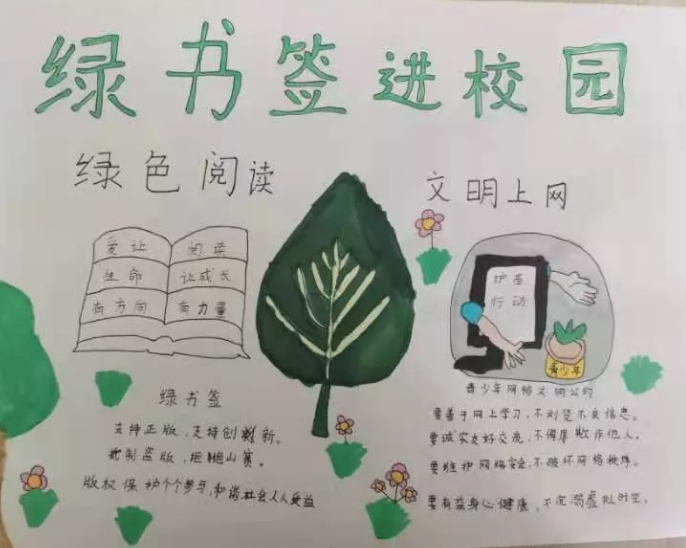 绿书签进校园
绿色阅读
文明上网
爱让 阅读
生命 让成长
有方向 有力量
护苗
行动
青少年
绿书签
支持正版，支持创新。
抵制盗版，拒绝山寨。
版权保护个个参与，和谐社会人人受益
青少年网络文明公约
要善于网上学习，不浏览不良信息。
要诚实友好交流，不侮辱欺诈他人。
要维护网络安全，不破坏网络秩序。
要有益身心健康，不沉溺虚拟时空。